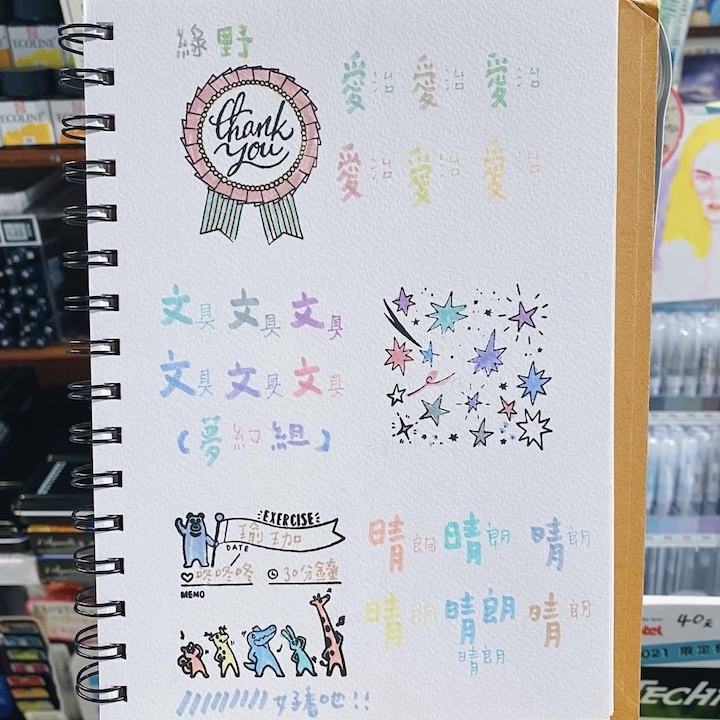 綠野
thank
you
愛治 愛治 愛治
愛治 愛治 愛治
文具 文具 文具
文具 文具 文具
(夢幻組)
EXERCISE
瑜珈
DATE
咚咚咚 30分鐘
MEMO
晴朗 晴朗 晴朗
晴朗 晴朗 晴朗
晴朗
好看吧!!
ECOLINE
40元
2021 限定